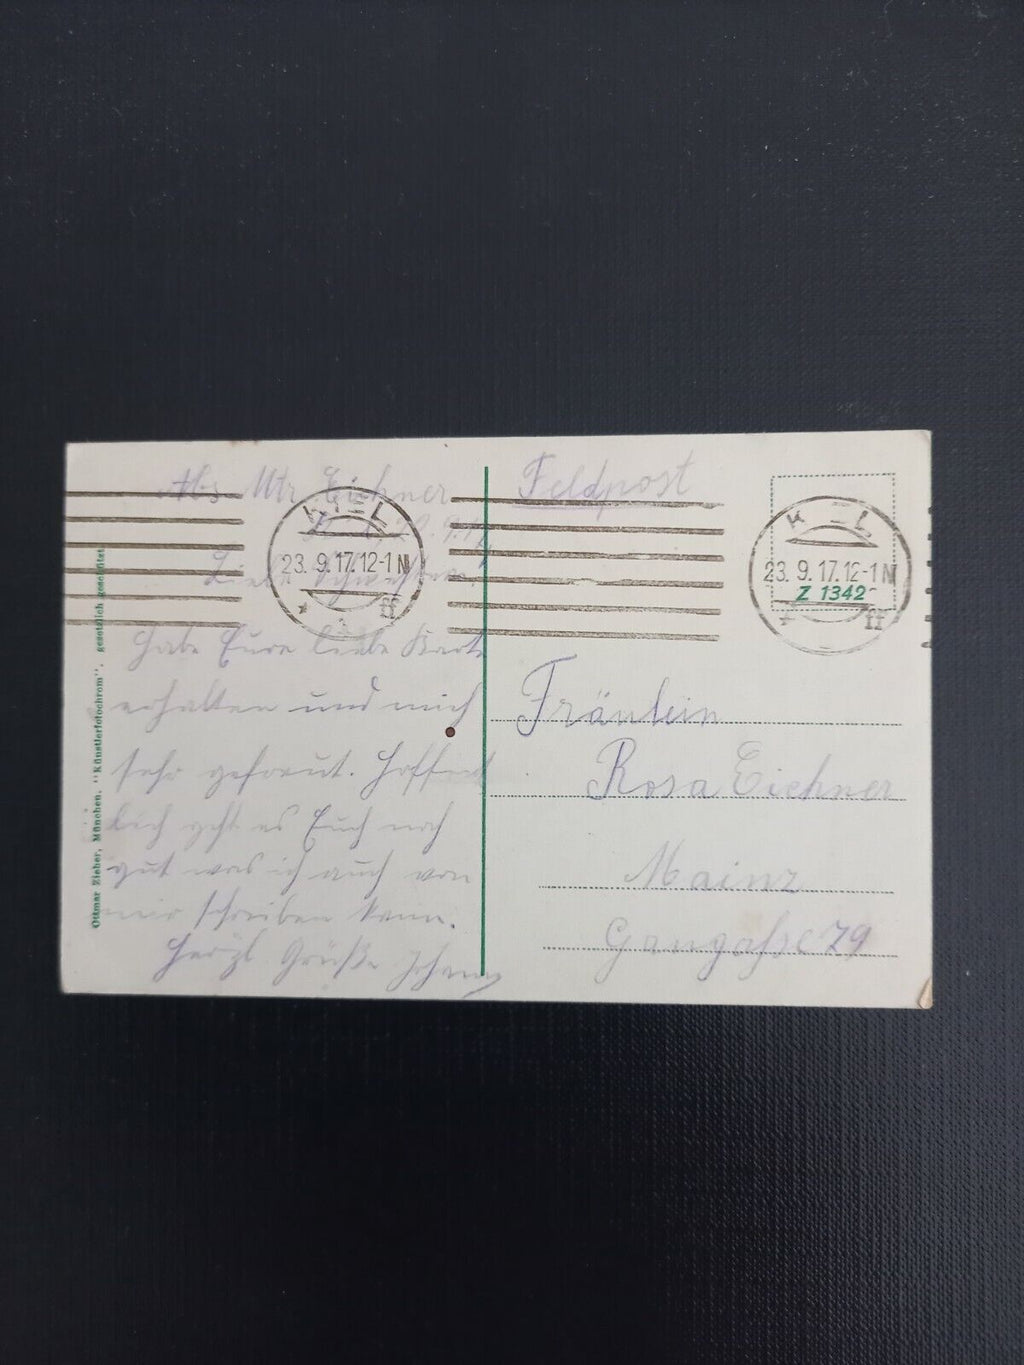 Abs. Mtr. Eichner
20.9.17
Liebe Schwester,
Habe Eure liebe Karte
erhalten und mich
sehr gefreut. Hoffent
lich geht es Euch noch
gut was ich auch von
mir schreiben kann.
Herzl. Grüße Johann
Feldpost
KIEL
23. 9. 17. 12-1 N
* ff
KIEL
23. 9. 17. 12-1 N
* ff
Z 1342
Fräulein
Rosa Eichner
Mainz
Gaugasse 79
Ottmar Zieher, München. "Künstlerfotochrom", gesetzlich geschützt.